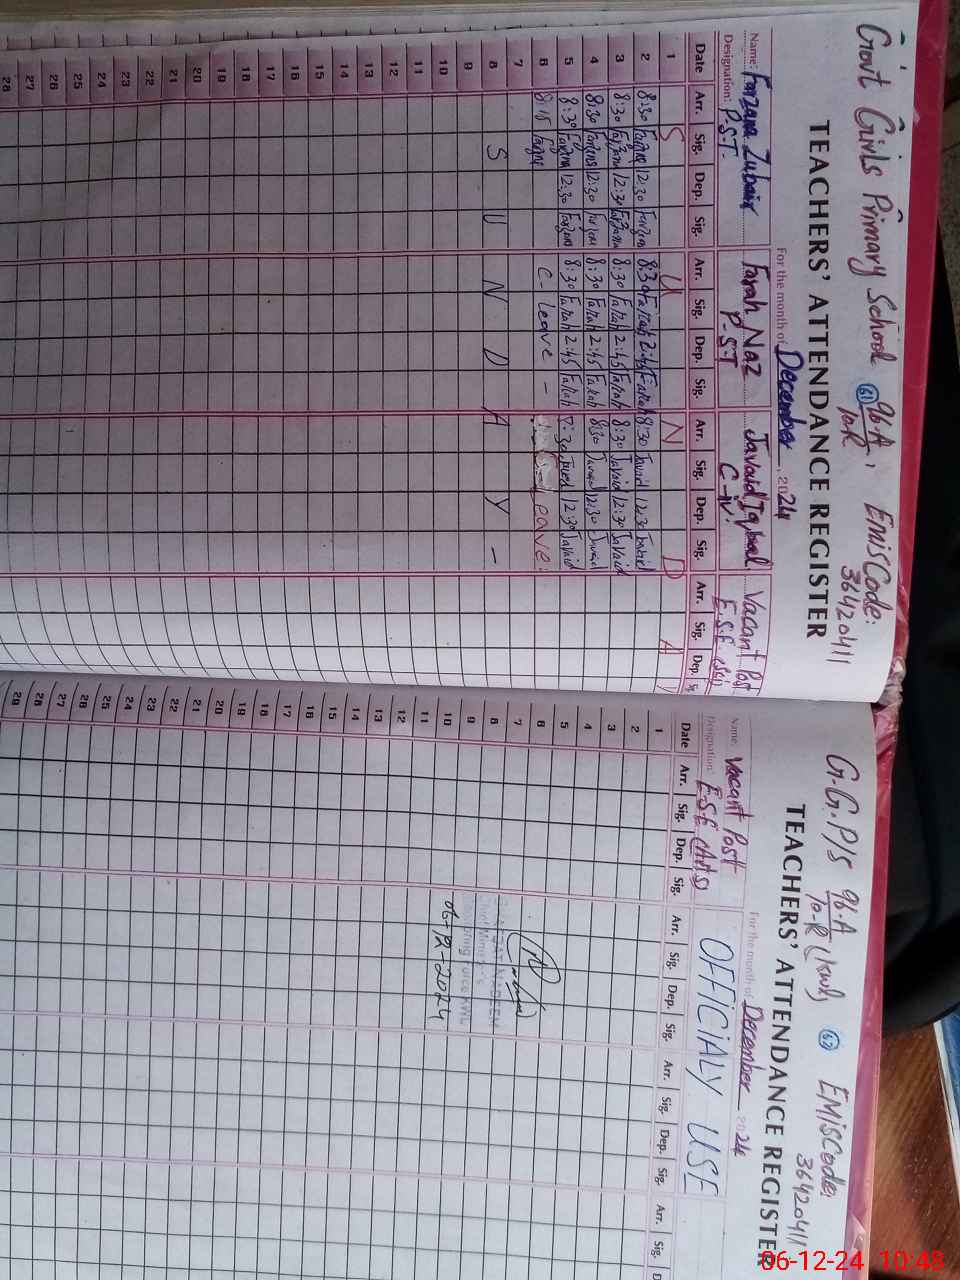 Govt Girls Primary School 96-A/10-R, EmisCode: 36420411
61
TEACHERS' ATTENDANCE REGISTER
For the month of December, 2024
Name: Farzana Zubair Farah Naz Javaid Iqbal Vacant Post
Designation: P.S.T. P.S.T C-IV E.S.E (Sci)
Date Arr. Sig. Dep. Sig. Arr. Sig. Dep. Sig. Arr. Sig. Dep. Sig. Arr. Sig. Dep. Sig.
1 S U N D A Y
2 8:30 Farzana 12:30 Farzana 8:30 Farah 2:45 Farah 8:30 Javaid 12:30 Javaid
3 8:30 Farzana 12:30 Farzana 8:30 Farah 2:45 Farah 8:30 Javaid 12:30 Javaid
4 8:30 Farzana 12:30 Farzana 8:30 Farah 2:45 Farah 8:30 Javaid 12:30 Javaid
5 8:30 Farzana 12:30 Farzana 8:30 Farah 2:45 Farah 7:30 Javaid 12:30 Javaid
6 8:15 Farzana C-leave - Leave
7
8 S U N D A Y -
9
10
11
12
13
14
15
16
17
18
19
20
21
22
23
24
25
26
27
28
G.G.P/S 96-A/10-R (Kwl) EMisCode: 36420411
62
TEACHERS' ATTENDANCE REGISTER
For the month of December 2024
Name: Vacant Post OFFICIALY USE
Designation: E.S.E (Arts)
Date Arr. Sig. Dep. Sig. Arr. Sig. Dep. Sig. Arr. Sig. Dep. Sig. Arr. Sig. D
1
2
3
4
5
6
7
8
9
10
11
12
13
14
15
16
17
18
19
20
21
22
23
24
25
26
27
28
29
NADEEM
Chief Minister's
Monitoring Force KWL
06-12-2024
06-12-24 10:48